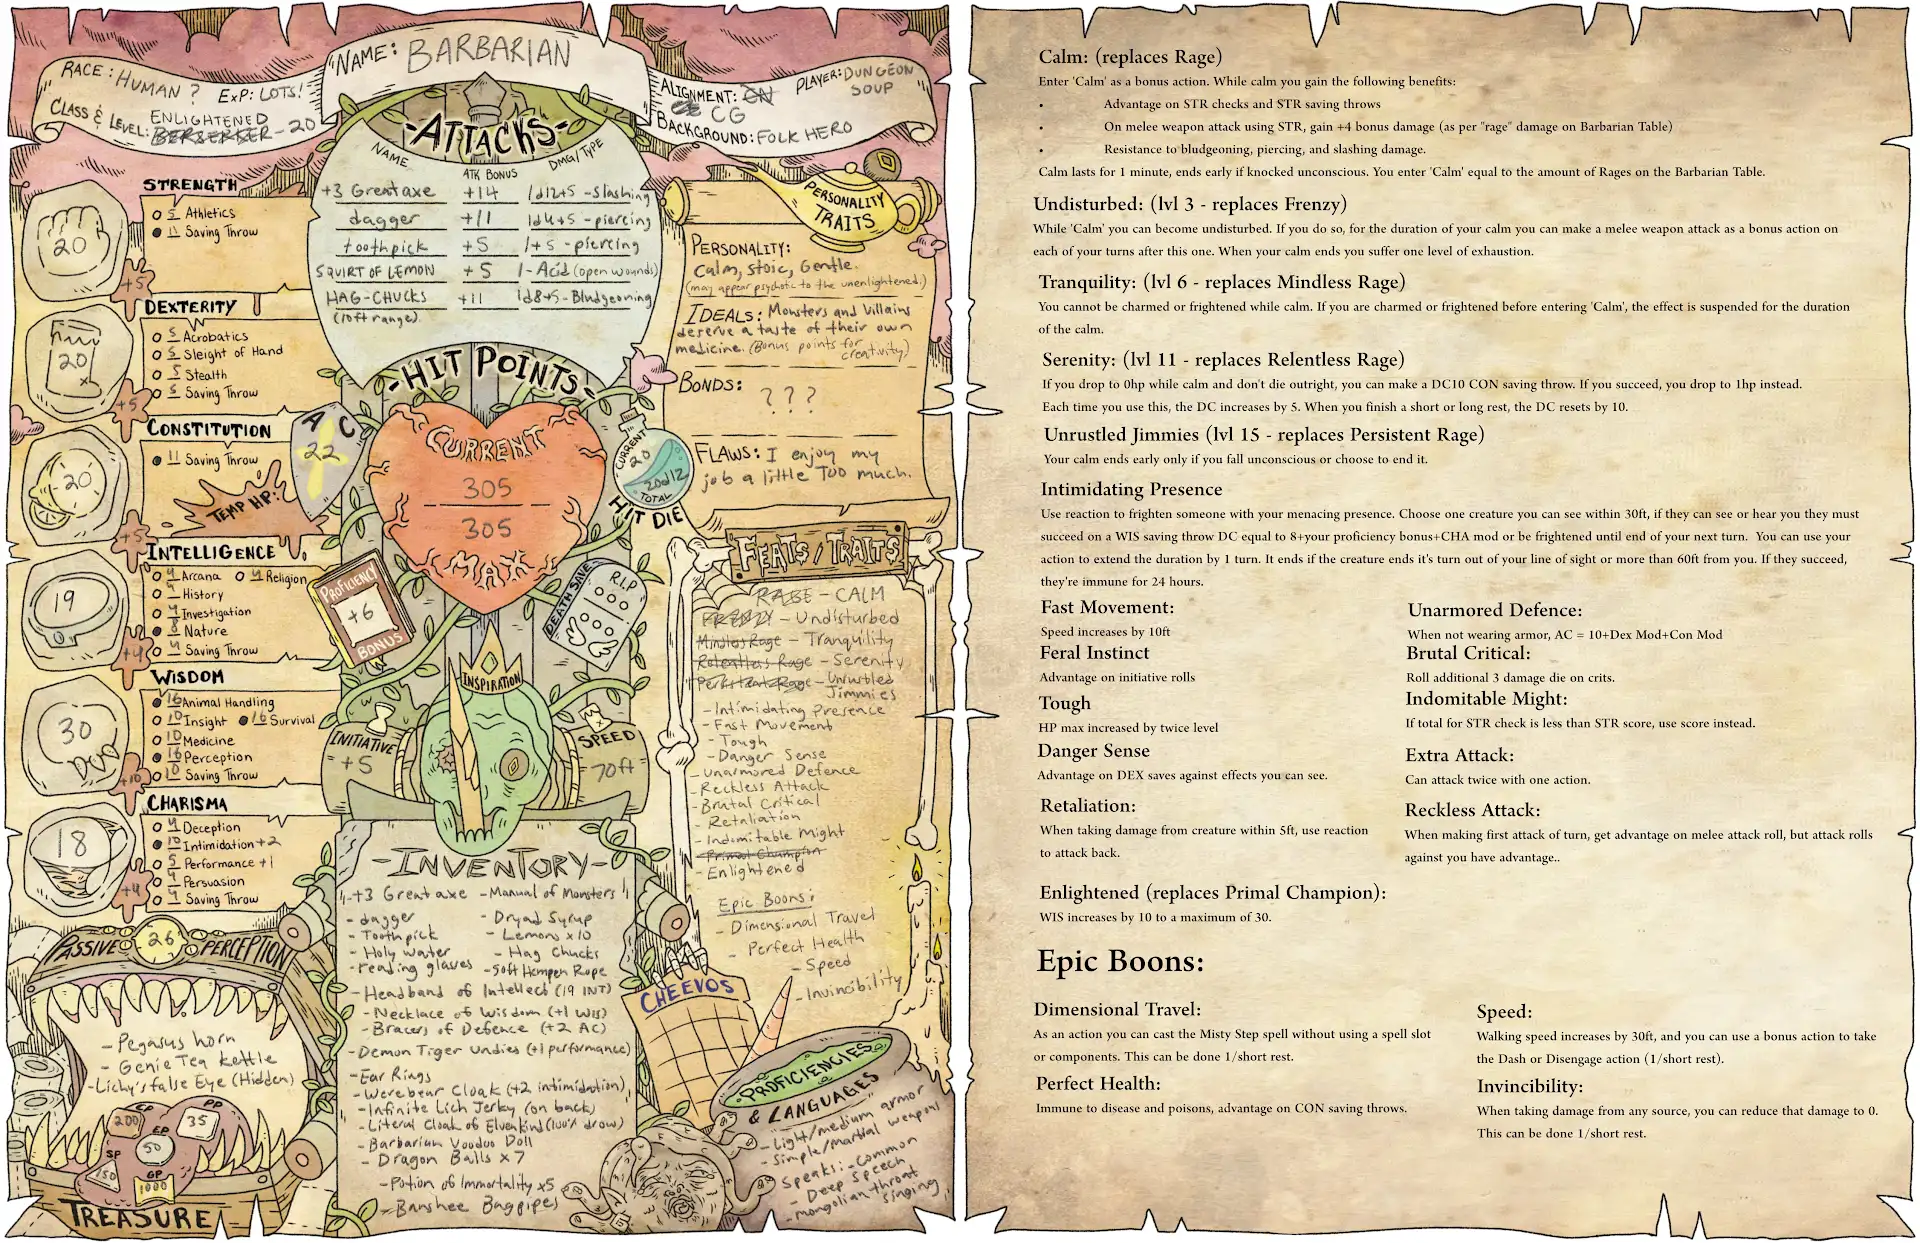 NAME: BARBARIAN
RACE: HUMAN ?
EXP: LOTS!
CLASS & LEVEL: ENLIGHTENED
BERSERKER - 20
ALIGNMENT: CG
BACKGROUND: FOLK HERO
PLAYER: DUNGEON
SOUP
STRENGTH
20
+5
5 Athletics
11 Saving Throw
DEXTERITY
20
+5
5 Acrobatics
5 Sleight of Hand
5 Stealth
5 Saving Throw
CONSTITUTION
20
+5
11 Saving Throw
TEMP HP:
INTELLIGENCE
19
+4
4 Arcana 4 Religion
4 History
4 Investigation
8 Nature
4 Saving Throw
WISDOM
30
+10
16 Animal Handling
10 Insight 16 Survival
10 Medicine
16 Perception
10 Saving Throw
CHARISMA
18
+4
4 Deception
10 Intimidation +2
5 Performance +1
4 Persuasion
4 Saving Throw
PASSIVE 26 PERCEPTION
- Pegasus horn
- Genie Tea Kettle
- Lichy's false Eye (Hidden)
CP 200
PP 35
EP 50
SP 150
GP 1000
TREASURE
-ATTACKS-
NAME ATK BONUS DMG/TYPE
+3 Greataxe +14 1d12+5 - slashing
dagger +11 1d4+5 - piercing
toothpick +5 1+5 - piercing
SQUIRT OF LEMON +5 1 - Acid (open wounds)
HAG-CHUCKS +11 1d8+5 - Bludgeoning
(10ft range)
-HIT POINTS-
AC
22
CURRENT
305
305
MAX
CURRENT
20
20d12
TOTAL
HIT DIE
PROFICIENCY
+6
BONUS
DEATH SAVE
R.I.P
INSPIRATION
INITIATIVE
+5
SPEED
70ft
-INVENTORY-
-+3 Greataxe - Manual of Monsters
- dagger - Dryad Syrup
- Toothpick - Lemons x10
- Holy water - Hag Chucks
- reading glaves - 50ft Hempen Rope
- Headband of Intellect (19 INT)
- Necklace of Wisdom (+1 WIS)
- Bracers of Defence (+2 AC)
- Demon Tiger Undies (+1 performance)
- Ear Rings
- Werebear Cloak (+2 intimidation)
- Infinite Lich Jerky (on back)
- Literal Cloak of Elvenkind (100% drow)
- Barbarian Voodoo Doll
- Dragon Balls x7
- Potion of Immortality x5
- Banshee Bagpipes
PERSONALITY
TRAITS
PERSONALITY:
Calm, Stoic, Gentle.
(may appear psychotic to the unenlightened.)
IDEALS: Monsters and Villains
deserve a taste of their own
medicine. (Bonus points for
creativity)
BONDS:
???
FLAWS: I enjoy my
job a little TOO much.
FEATS/TRAITS
RAGE - CALM
FRENZY - Undisturbed
Mindless Rage - Tranquility
Relentless Rage - Serenity
Persistent Rage - Unrustled
Jimmies
- Intimidating Presence
- Fast Movement
- Tough
- Danger Sense
- Unarmored Defence
- Reckless Attack
- Brutal Critical
- Retaliation
- Indomitable Might
- Primal Champion
- Enlightened
Epic Boons:
- Dimensional Travel
- Perfect Health
- Speed
- Invincibility
CHEEVOS
PROFICIENCIES
& LANGUAGES
- Light/medium armor
- Simple/martial weapons
Speaks: - Common
- Deep Speech
- Mongolian throat
singing
Calm: (replaces Rage)
Enter 'Calm' as a bonus action. While calm you gain the following benefits:
• Advantage on STR checks and STR saving throws
• On melee weapon attack using STR, gain +4 bonus damage (as per "rage" damage on Barbarian Table)
• Resistance to bludgeoning, piercing, and slashing damage.
Calm lasts for 1 minute, ends early if knocked unconscious. You enter 'Calm' equal to the amount of Rages on the Barbarian Table.
Undisturbed: (lvl 3 - replaces Frenzy)
While 'Calm' you can become undisturbed. If you do so, for the duration of your calm you can make a melee weapon attack as a bonus action on
each of your turns after this one. When your calm ends you suffer one level of exhaustion.
Tranquility: (lvl 6 - replaces Mindless Rage)
You cannot be charmed or frightened while calm. If you are charmed or frightened before entering 'Calm', the effect is suspended for the duration
of the calm.
Serenity: (lvl 11 - replaces Relentless Rage)
If you drop to 0hp while calm and don't die outright, you can make a DC10 CON saving throw. If you succeed, you drop to 1hp instead.
Each time you use this, the DC increases by 5. When you finish a short or long rest, the DC resets by 10.
Unrustled Jimmies (lvl 15 - replaces Persistent Rage)
Your calm ends early only if you fall unconscious or choose to end it.
Intimidating Presence
Use reaction to frighten someone with your menacing presence. Choose one creature you can see within 30ft, if they can see or hear you they must
succeed on a WIS saving throw DC equal to 8+your proficiency bonus+CHA mod or be frightened until end of your next turn. You can use your
action to extend the duration by 1 turn. It ends if the creature ends it's turn out of your line of sight or more than 60ft from you. If they succeed,
they're immune for 24 hours.
Fast Movement:
Speed increases by 10ft
Feral Instinct
Advantage on initiative rolls
Tough
HP max increased by twice level
Danger Sense
Advantage on DEX saves against effects you can see.
Retaliation:
When taking damage from creature within 5ft, use reaction
to attack back.
Unarmored Defence:
When not wearing armor, AC = 10+Dex Mod+Con Mod
Brutal Critical:
Roll additional 3 damage die on crits.
Indomitable Might:
If total for STR check is less than STR score, use score instead.
Extra Attack:
Can attack twice with one action.
Reckless Attack:
When making first attack of turn, get advantage on melee attack roll, but attack rolls
against you have advantage..
Enlightened (replaces Primal Champion):
WIS increases by 10 to a maximum of 30.
Epic Boons:
Dimensional Travel:
As an action you can cast the Misty Step spell without using a spell slot
or components. This can be done 1/short rest.
Perfect Health:
Immune to disease and poisons, advantage on CON saving throws.
Speed:
Walking speed increases by 30ft, and you can use a bonus action to take
the Dash or Disengage action (1/short rest).
Invincibility:
When taking damage from any source, you can reduce that damage to 0.
This can be done 1/short rest.